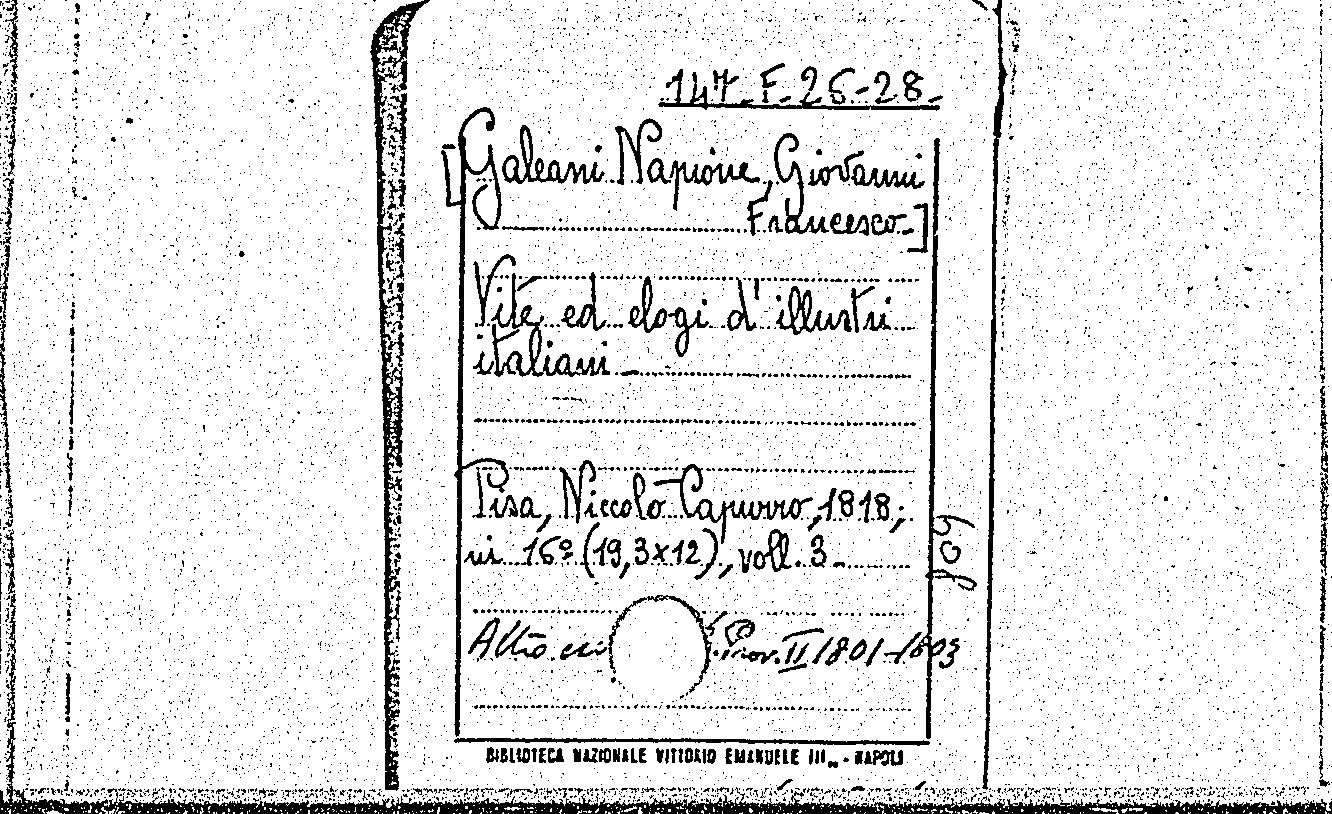 147.F.26-28.
[Galeani Napione, Giovanni
Francesco-]
Vite ed elogi d'illustri
italiani -
Pisa, Niccolò Capurro, 1818;
in 16º (19,3x12), voll. 3 -
609
Altro es
Prov. II 1801-1803
BIBLIOTECA NAZIONALE VITTORIO EMANUELE III - NAPOLI